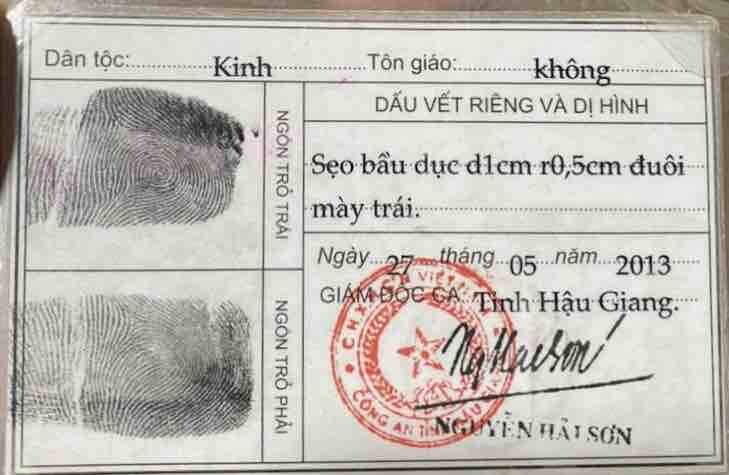 Dân tộc: Kinh Tôn giáo: không
NGÓN TRỎ TRÁI
DẤU VẾT RIÊNG VÀ DỊ HÌNH
Sẹo bầu dục d1cm r0,5cm đuôi
mày trái.
Ngày 27 tháng 05 năm 2013
GIÁM ĐỐC CA: Tỉnh Hậu Giang.
NGÓN TRỎ PHẢI
NGUYỄN HẢI SƠN